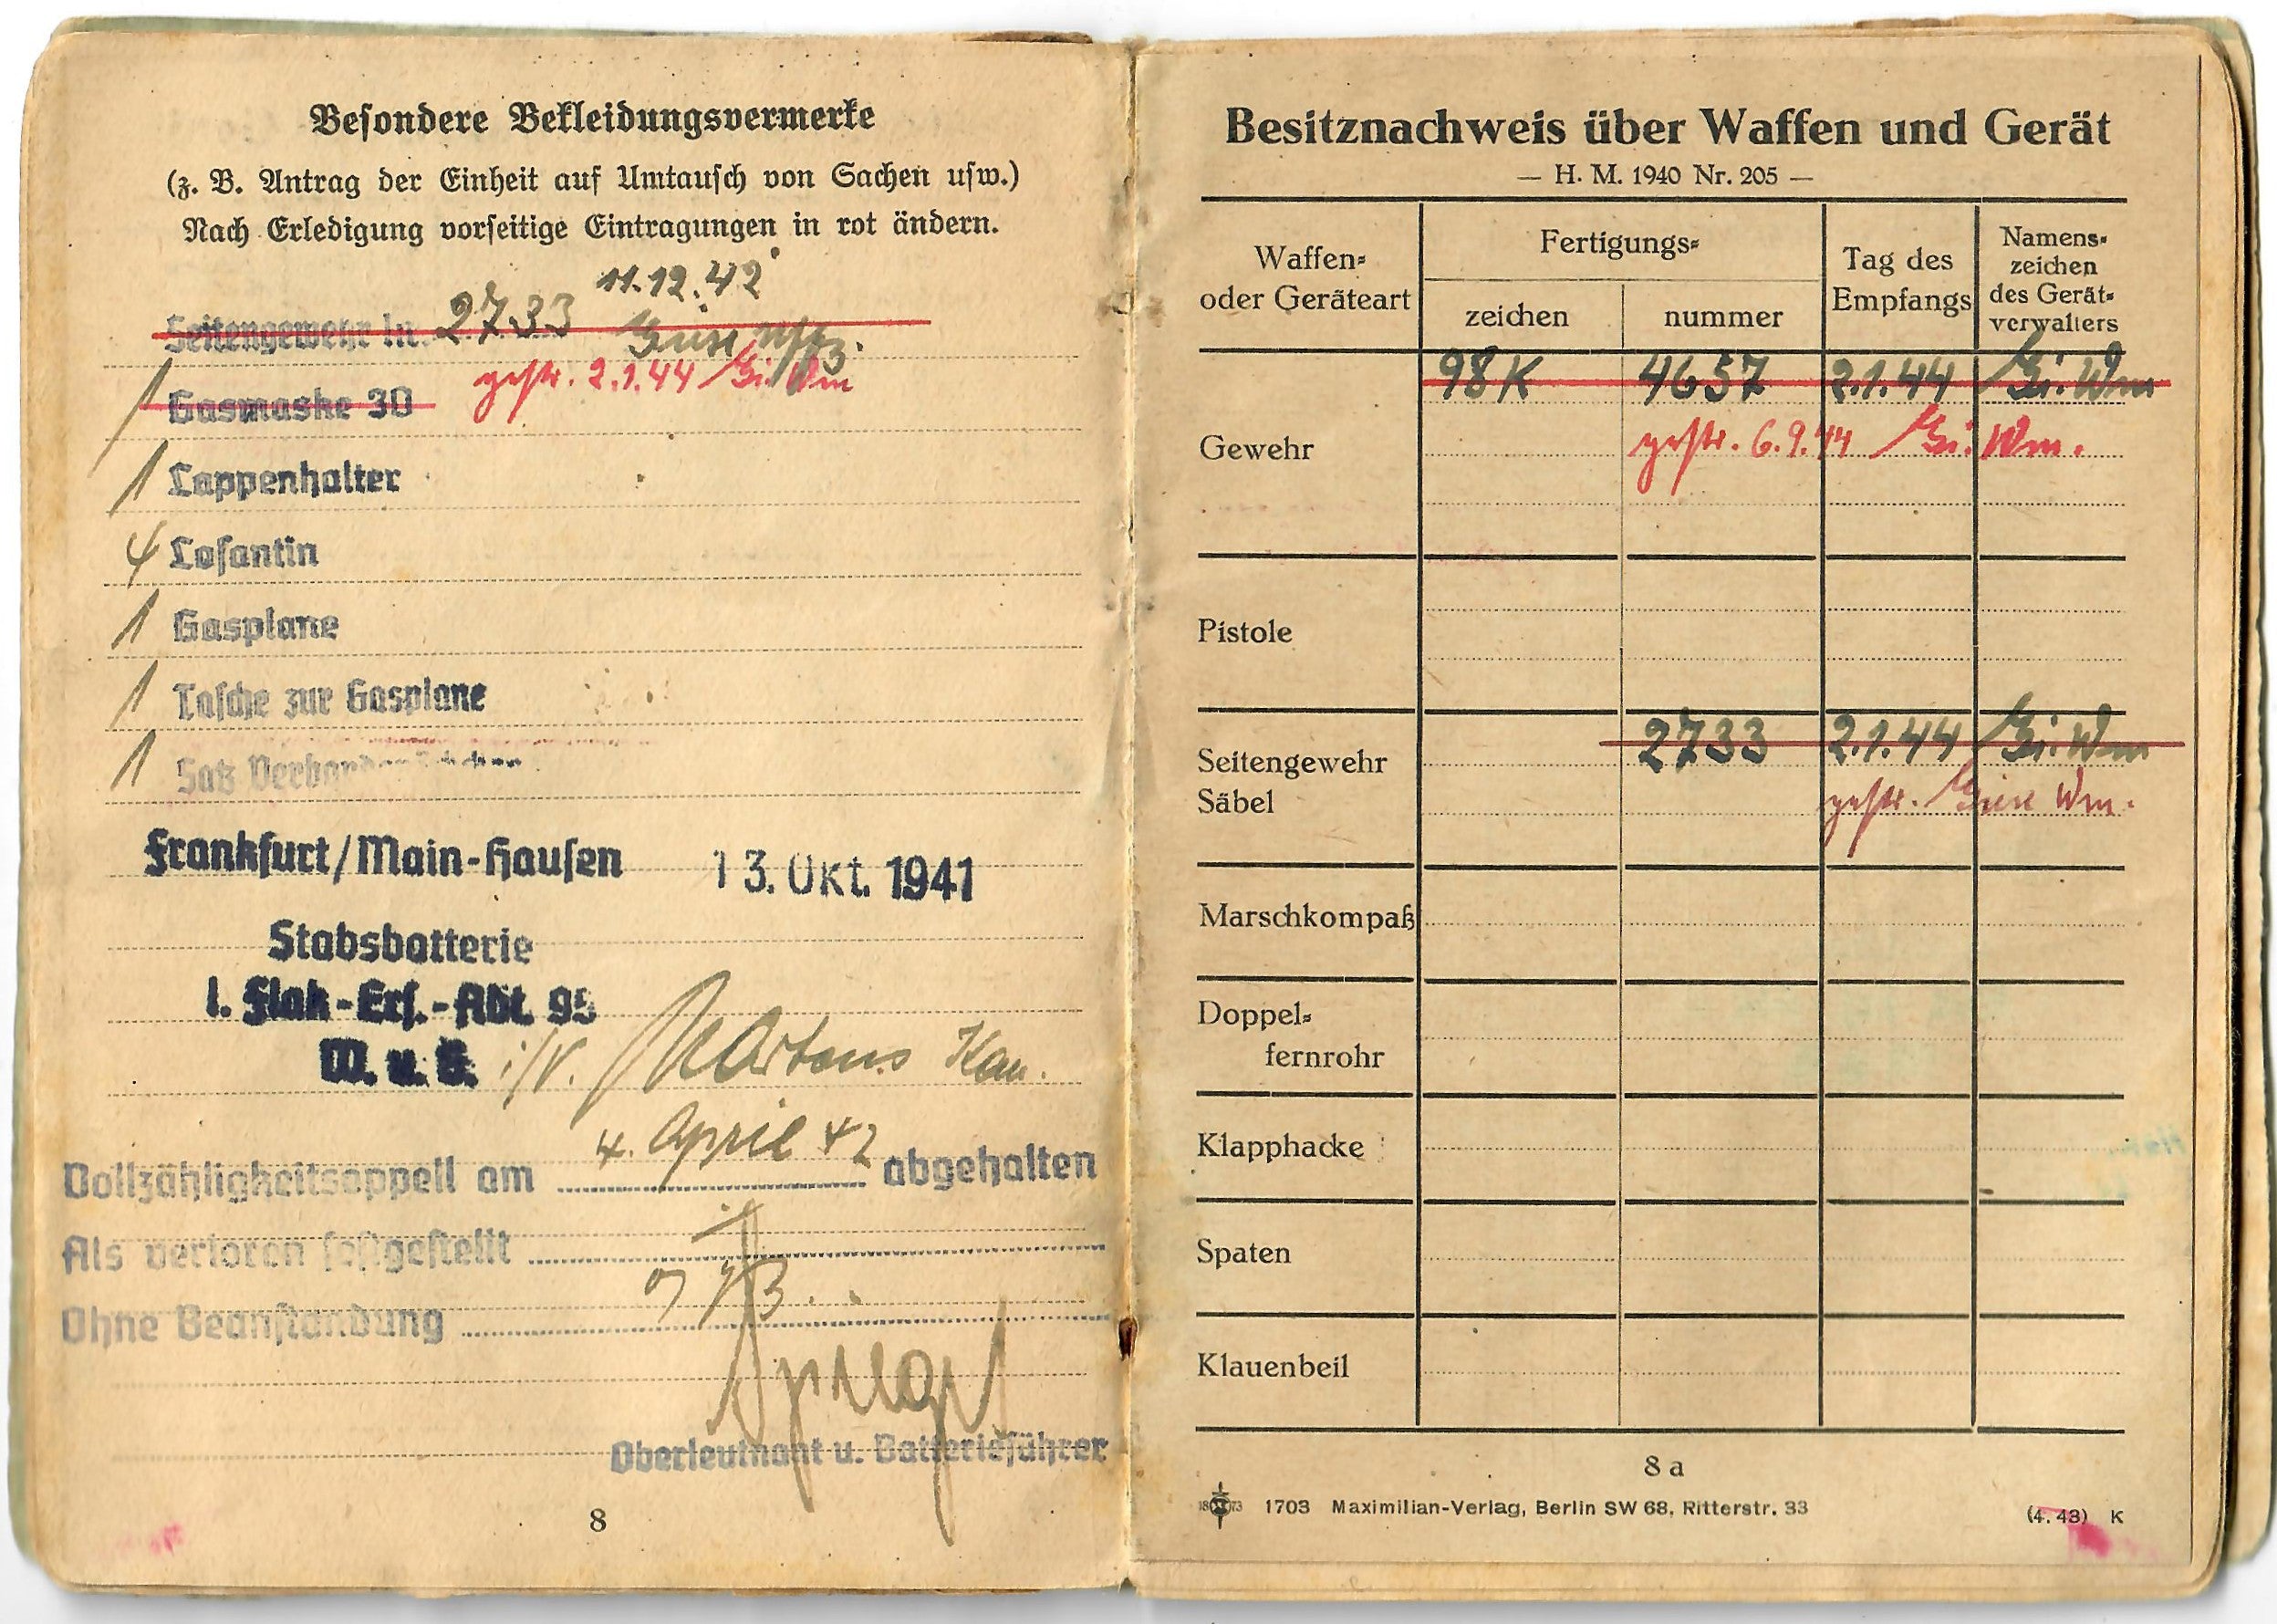 Besondere Bekleidungsvermerke
(z. B. Antrag der Einheit auf Umtausch von Sachen usw.)
Nach Erledigung vorseitige Eintragungen in rot ändern.
11.12.42
Seitengewehr 2733 Giese Uffz.
gestr. 2.1.44 Gi. Wm
1 Gasmaske 30
1 Lappenhalter
4 Losantin
1 Gasplane
1 Tasche zur Gasplane
1 Satz
Frankfurt/Main-Hausen 13. Okt. 1941
Stabsbatterie
I. Flak-Ers.-Abt. 95
W. u. G. i/V. Martens Kan.
4. April 42
Vollzähligkeitsappell am abgehalten
Als verloren festgestellt
Ohne Beanstandung
Oberleutnant u. Batterieführer
8
Besitznachweis über Waffen und Gerät
— H. M. 1940 Nr. 205 —
Waffen- oder Geräteart
Fertigungs-
zeichen
nummer
Tag des Empfangs
Namens-zeichen des Gerät-verwalters
Gewehr
98K 4657 2.1.44 Gi. Wm
gestr. 6.9.44 Gi. Wm.
Pistole
Seitengewehr Säbel
2733 2.1.44 Gi. Wm
gestr. Giese Wm.
Marschkompaß
Doppel-
fernrohr
Klapphacke
Spaten
Klauenbeil
8 a
1703 Maximilian-Verlag, Berlin SW 68, Ritterstr. 33
(4. 43) K